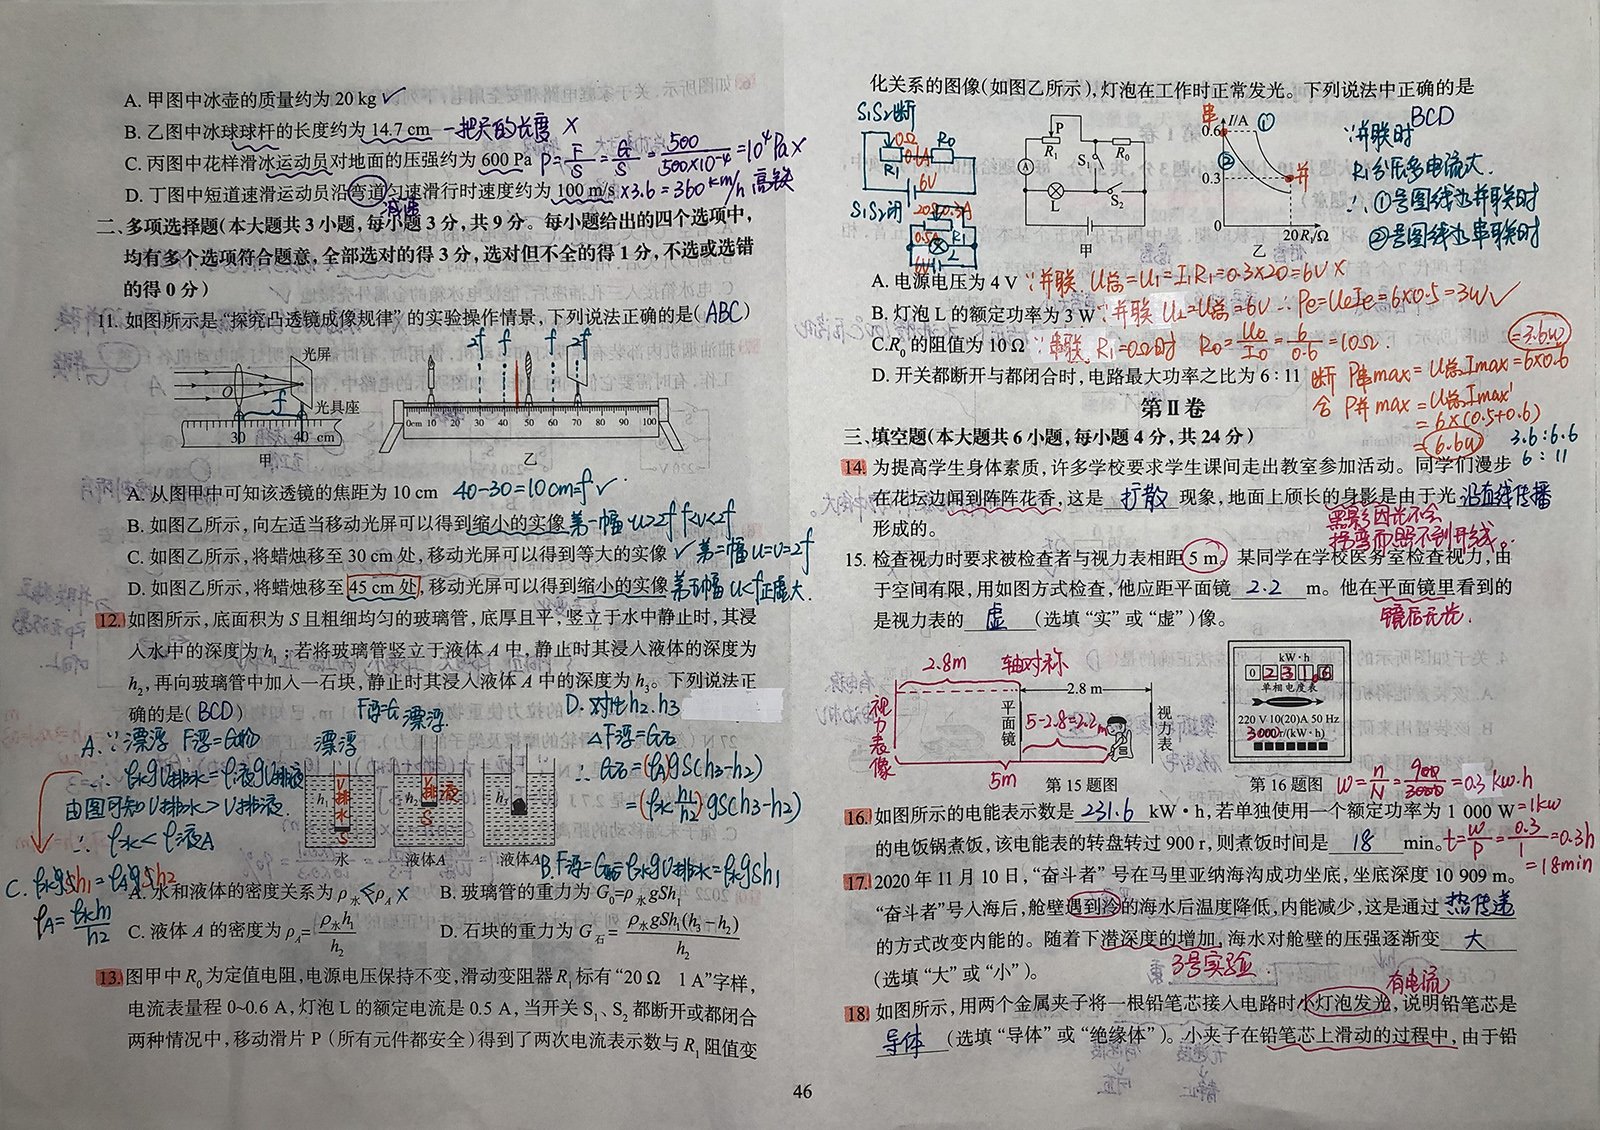 A. 甲图中冰壶的质量约为20 kg ✓
B. 乙图中冰球球杆的长度约为14.7 cm 一把尺的长度 ×
C. 丙图中花样滑冰运动员对地面的压强约为600 Pa P=F/S=G/S=500/500×10⁻⁴=10⁴Pa×
D. 丁图中短道速滑运动员沿弯道匀速滑行时速度约为100 m/s ×3.6=360km/h 高铁
减速
二、多项选择题(本大题共3小题,每小题3分,共9分。每小题给出的四个选项中,
均有多个选项符合题意,全部选对的得3分,选对但不全的得1分,不选或选错
的得0分)
11. 如图所示是“探究凸透镜成像规律”的实验操作情景,下列说法正确的是(ABC)
光屏
光具座
f
30 40 cm
甲
2f f f 2f
0cm 10 20 30 40 50 60 70 80 90 100
乙
A. 从图甲中可知该透镜的焦距为10 cm 40-30=10cm=f ✓
B. 如图乙所示,向左适当移动光屏可以得到缩小的实像 第一幅 u>2f f<v<2f
C. 如图乙所示,将蜡烛移至30 cm处,移动光屏可以得到等大的实像 ✓ 第二幅 u=v=2f
D. 如图乙所示,将蜡烛移至45 cm处,移动光屏可以得到缩小的实像 第五幅 u<f正虚大.
12. 如图所示,底面积为S且粗细均匀的玻璃管,底厚且平,竖立于水中静止时,其浸
入水中的深度为h₁;若将玻璃管竖立于液体A中,静止时其浸入液体的深度为
h₂,再向玻璃管中加入一石块,静止时其浸入液体A中的深度为h₃。下列说法正
确的是(BCD)
F浮=G 漂浮
D. 对比h2.h3
A. ∵漂浮 F浮=G物
∴ρ水gV排水=ρ液gV排液
由图可知V排水>V排液
∴ρ水<ρ液A
漂浮
△F浮=G石
∴G石=(ρA)gS(h3-h2)
=(ρ水h1/h2)gS(h3-h2)
h₁ V排水 S
h₂ V排液 S
h₃
水 液体A 液体A
B. F浮=G管=ρ水gV排水=ρ水gSh1
C. ρ水gSh1=ρAgSh2
ρA=ρ水h1/h2
A. 水和液体的密度关系为ρ水≤ρA ×
B. 玻璃管的重力为G₀=ρ水gSh₁
C. 液体A的密度为ρA=ρ水h₁/h₂
D. 石块的重力为G石=ρ水gSh₁(h₃-h₂)/h₂
13. 图甲中R₀为定值电阻,电源电压保持不变,滑动变阻器R₁标有“20 Ω 1 A”字样,
电流表量程0~0.6 A,灯泡L的额定电流是0.5 A,当开关S₁、S₂都断开或都闭合
两种情况中,移动滑片P(所有元件都安全)得到了两次电流表示数与R₁阻值变
46
化关系的图像(如图乙所示),灯泡在工作时正常发光。下列说法中正确的是
BCD
S1S2断
0Ω
R1 0.6A R0
6V
S1S2闭
20Ω 0.3A
0.5A R1
L
6V
P
R₁ S₁ R₀
A
L S₂
甲
串 I/A
0.6
①
②
0.3
并
0 20 R₁/Ω
乙
∵并联时
R1分压多电流大.
∴①号图线为并联时
②号图线为串联时
A. 电源电压为4 V ∵并联 U总=U1=I1R1=0.3×20=6V ×
B. 灯泡L的额定功率为3 W ∵并联 UL=U总=6V ∴Pe=UeIe=6×0.5=3W ✓
C. R₀的阻值为10 Ω ∵串联 R1=0Ω时 R0=U0/I0=6/0.6=10Ω.
D. 开关都断开与都闭合时,电路最大功率之比为6∶11
断 P串max=U总Imax=6×0.6
=3.6W
合 P并max=U总Imax'
=6×(0.5+0.6)
=6.6W
3.6:6.6
6:11
第Ⅱ卷
三、填空题(本大题共6小题,每小题4分,共24分)
14. 为提高学生身体素质,许多学校要求学生课间走出教室参加活动。同学们漫步
在花坛边闻到阵阵花香,这是 扩散 现象,地面上颀长的身影是由于光 沿直线传播
形成的。
黑影因光不会
拐弯而照不到形成。
15. 检查视力时要求被检查者与视力表相距5 m。某同学在学校医务室检查视力,由
于空间有限,用如图方式检查,他应距平面镜 2.2 m。他在平面镜里看到的
是视力表的 虚 (选填“实”或“虚”)像。
镜后无光.
2.8m 轴对称
视力表像
平面镜
2.8 m
5-2.8=2.2m
视力表
5m
第15题图
kW·h
0 2 3 1 6
单相电度表
220 V 10(20)A 50 Hz
3000r/(kW·h)
第16题图
W=n/N=900/3000=0.3kw·h
16. 如图所示的电能表示数是 231.6 kW·h,若单独使用一个额定功率为1 000 W =1kw
的电饭锅煮饭,该电能表的转盘转过900 r,则煮饭时间是 18 min。t=W/P=0.3/1=0.3h
=18min
17. 2020年11月10日,“奋斗者”号在马里亚纳海沟成功坐底,坐底深度10 909 m。
“奋斗者”号入海后,舱壁遇到冷的海水后温度降低,内能减少,这是通过 热传递
的方式改变内能的。随着下潜深度的增加,海水对舱壁的压强逐渐变 大
(选填“大”或“小”)。
3号实验
有电流
18. 如图所示,用两个金属夹子将一根铅笔芯接入电路时小灯泡发光,说明铅笔芯是
导体 (选填“导体”或“绝缘体”)。小夹子在铅笔芯上滑动的过程中,由于铅